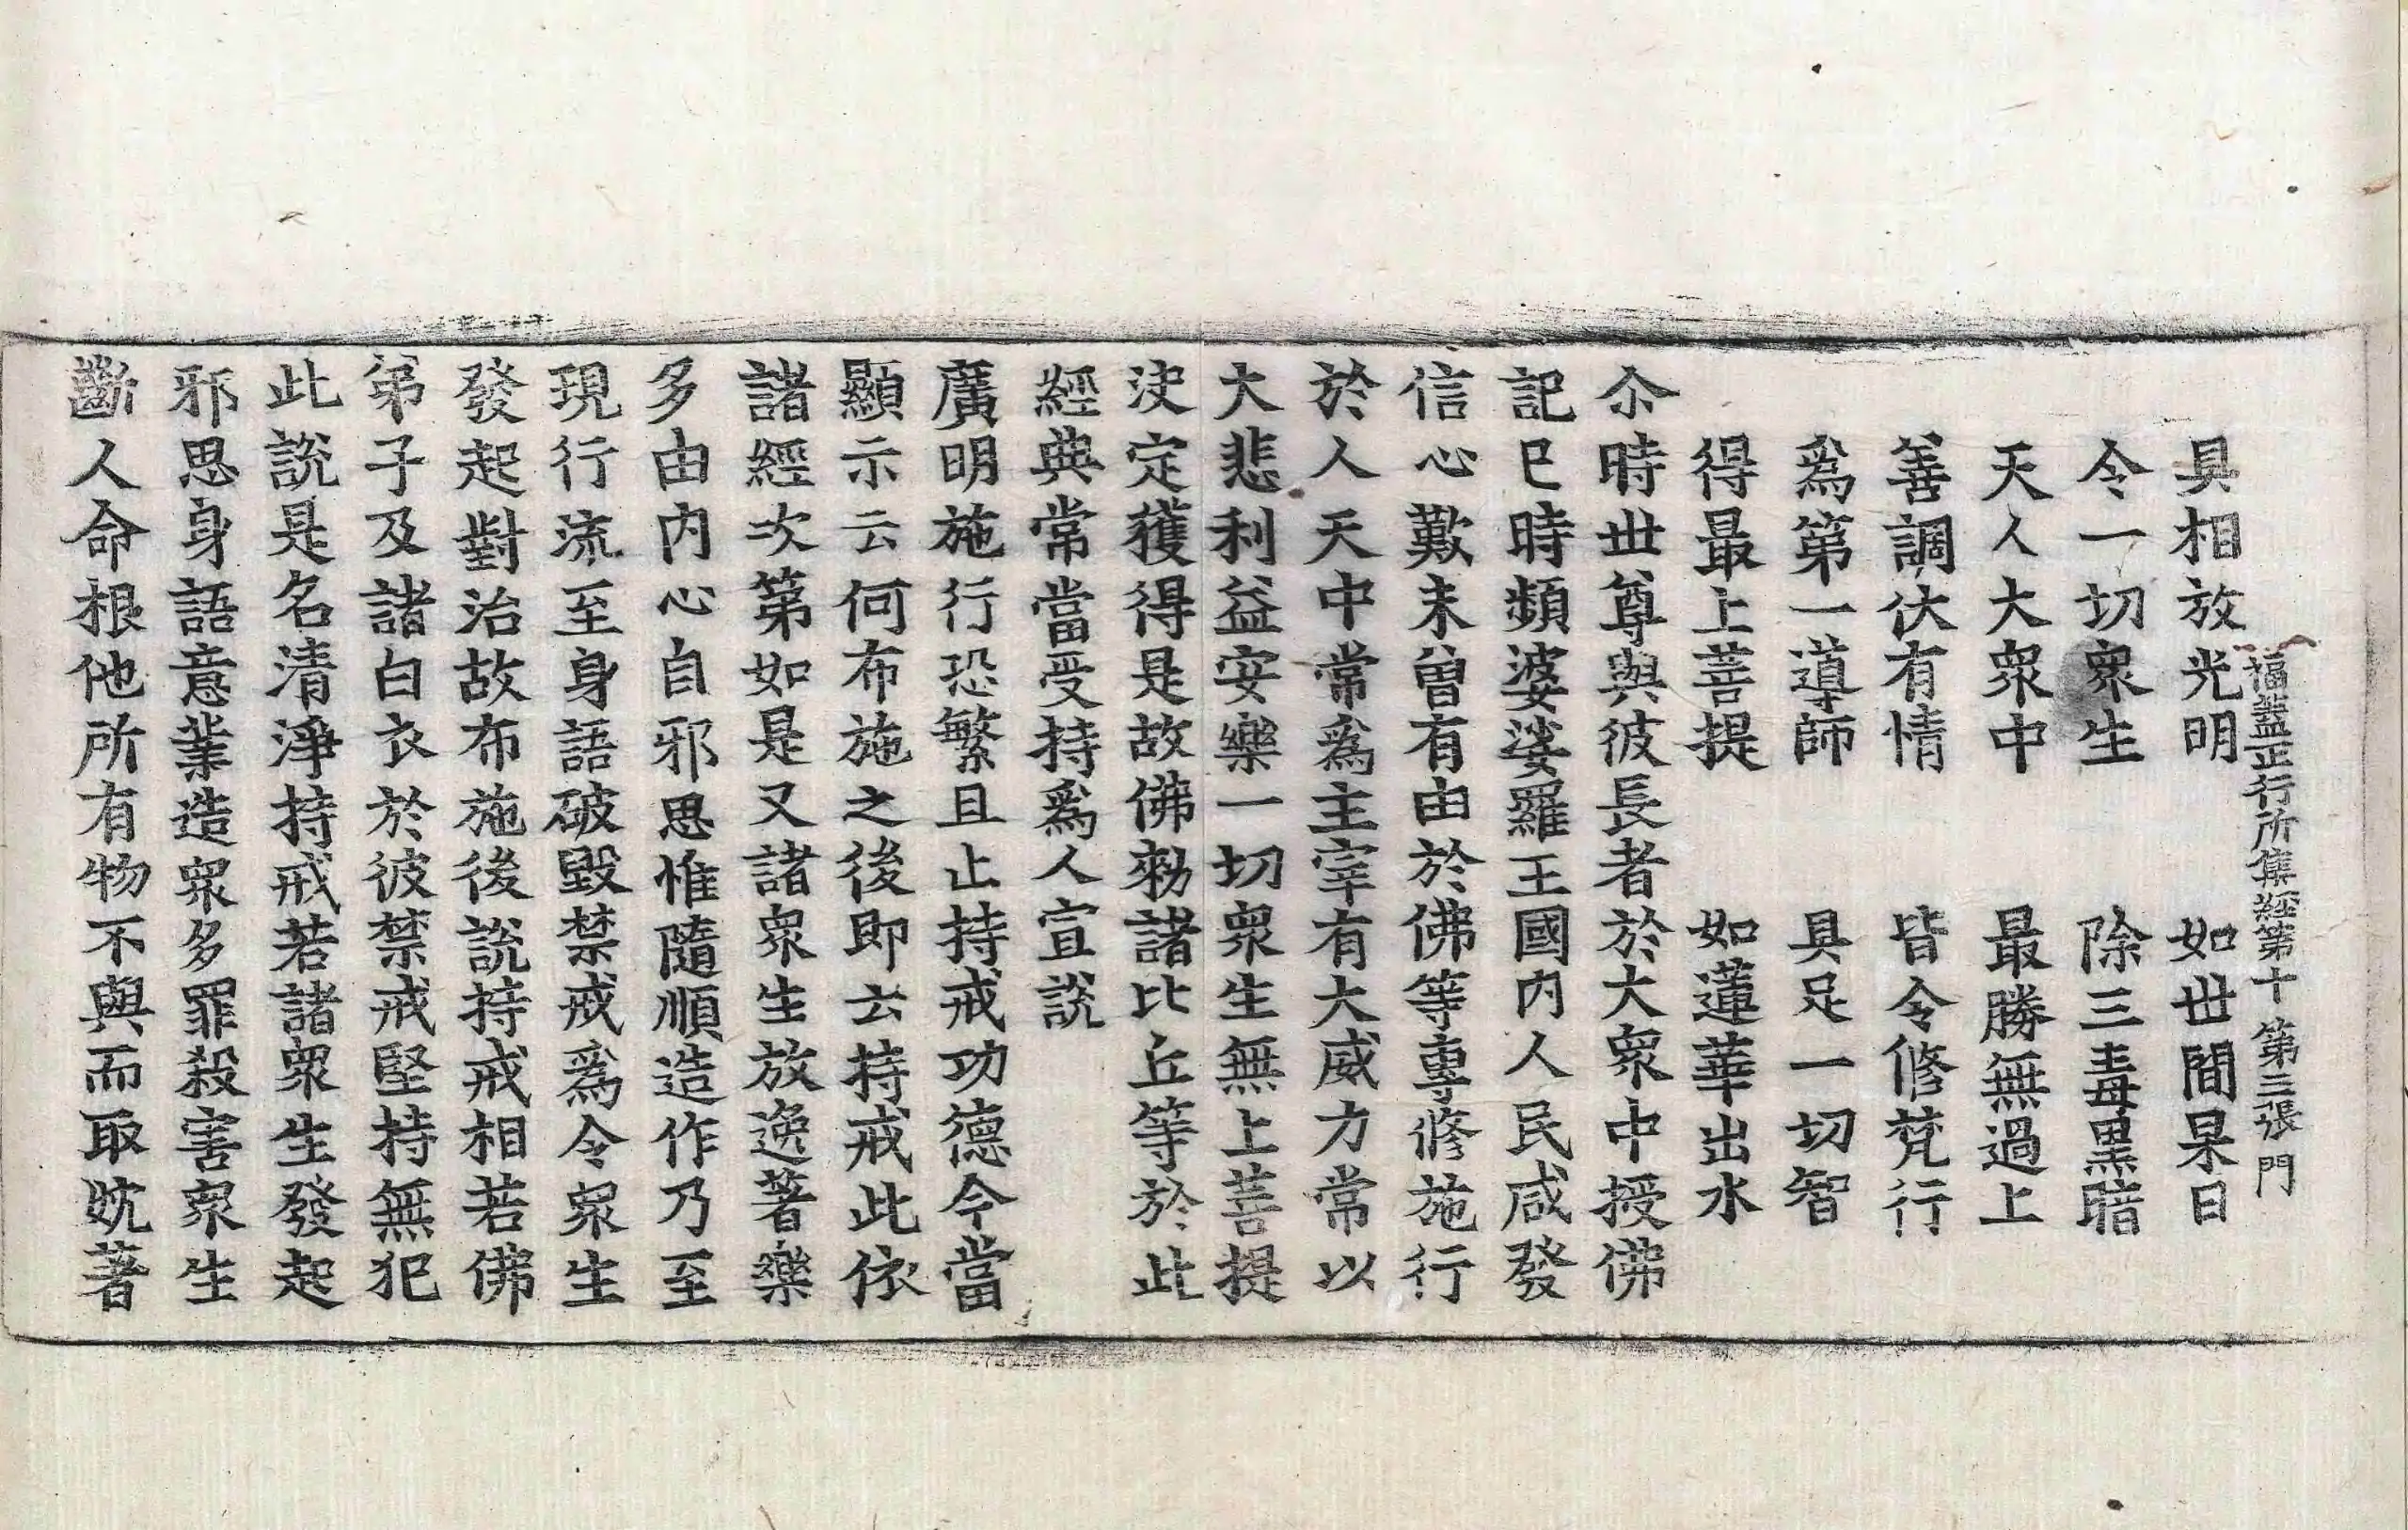 福蓋正行所集經第十 第三張 門
具相放光明 如世間杲日
令一切衆生 除三毒黒暗
天人大衆中 最勝無過上
善調伏有情 皆令修梵行
爲第一導師 具足一切智
得最上菩提 如蓮華出水
尒時世尊與彼長者於大衆中授佛
記已時頻婆娑羅王國内人民咸發
信心歎未曾有由於佛等專修施行
於人天中常爲主宰有大威力常以
大悲利益安樂一切衆生無上菩提
決定獲得是故佛勑諸比丘等於此
經典常當受持爲人宣說
廣明施行恐繁且止持戒功德今當
顯示云何布施之後即云持戒此依
諸經次第如是又諸衆生放逸著樂
多由内心自邪思惟隨順造作乃至
現行流至身語破毀禁戒爲令衆生
發起對治故布施後說持戒相若佛
弟子及諸白衣於彼禁戒堅持無犯
此說是名清淨持戒若諸衆生發起
邪思身語意業造衆多罪殺害衆生
斷人命根他所有物不與而取躭著